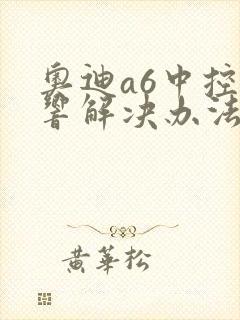 奥迪a6中控
響解决办法
黄華松